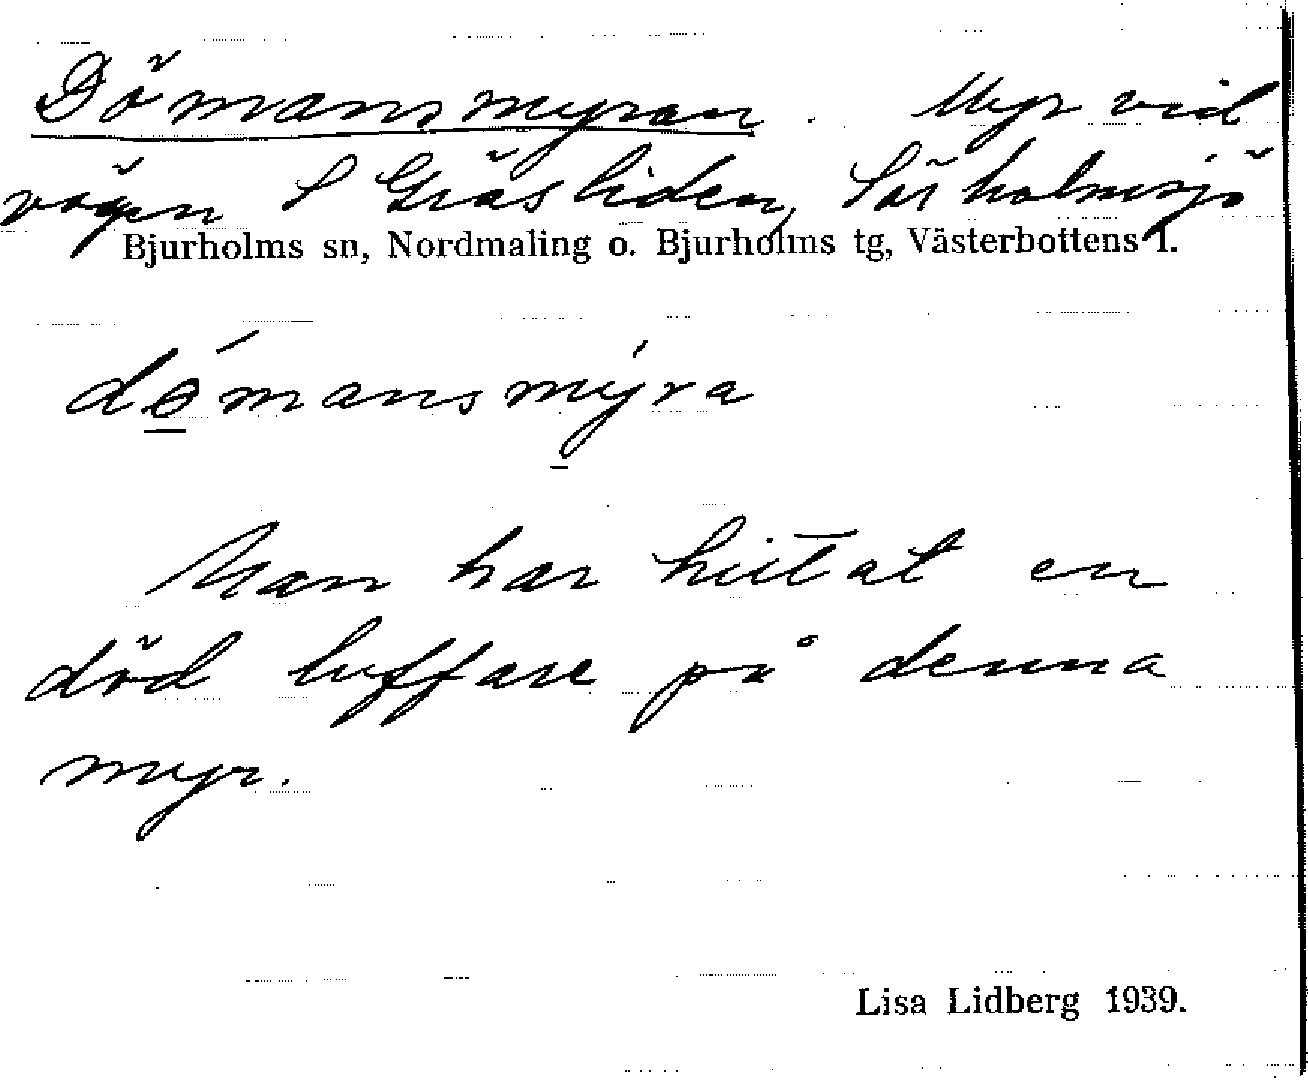 Dömansmyran. Myr vid
vägen S Gräsliden, Sörholmsjö
Bjurholms sn, Nordmaling o. Bjurholms tg, Västerbottens l.
dǿmansmýra
Man har hittat en
död luffare på denna
myr.
Lisa Lidberg 1939.